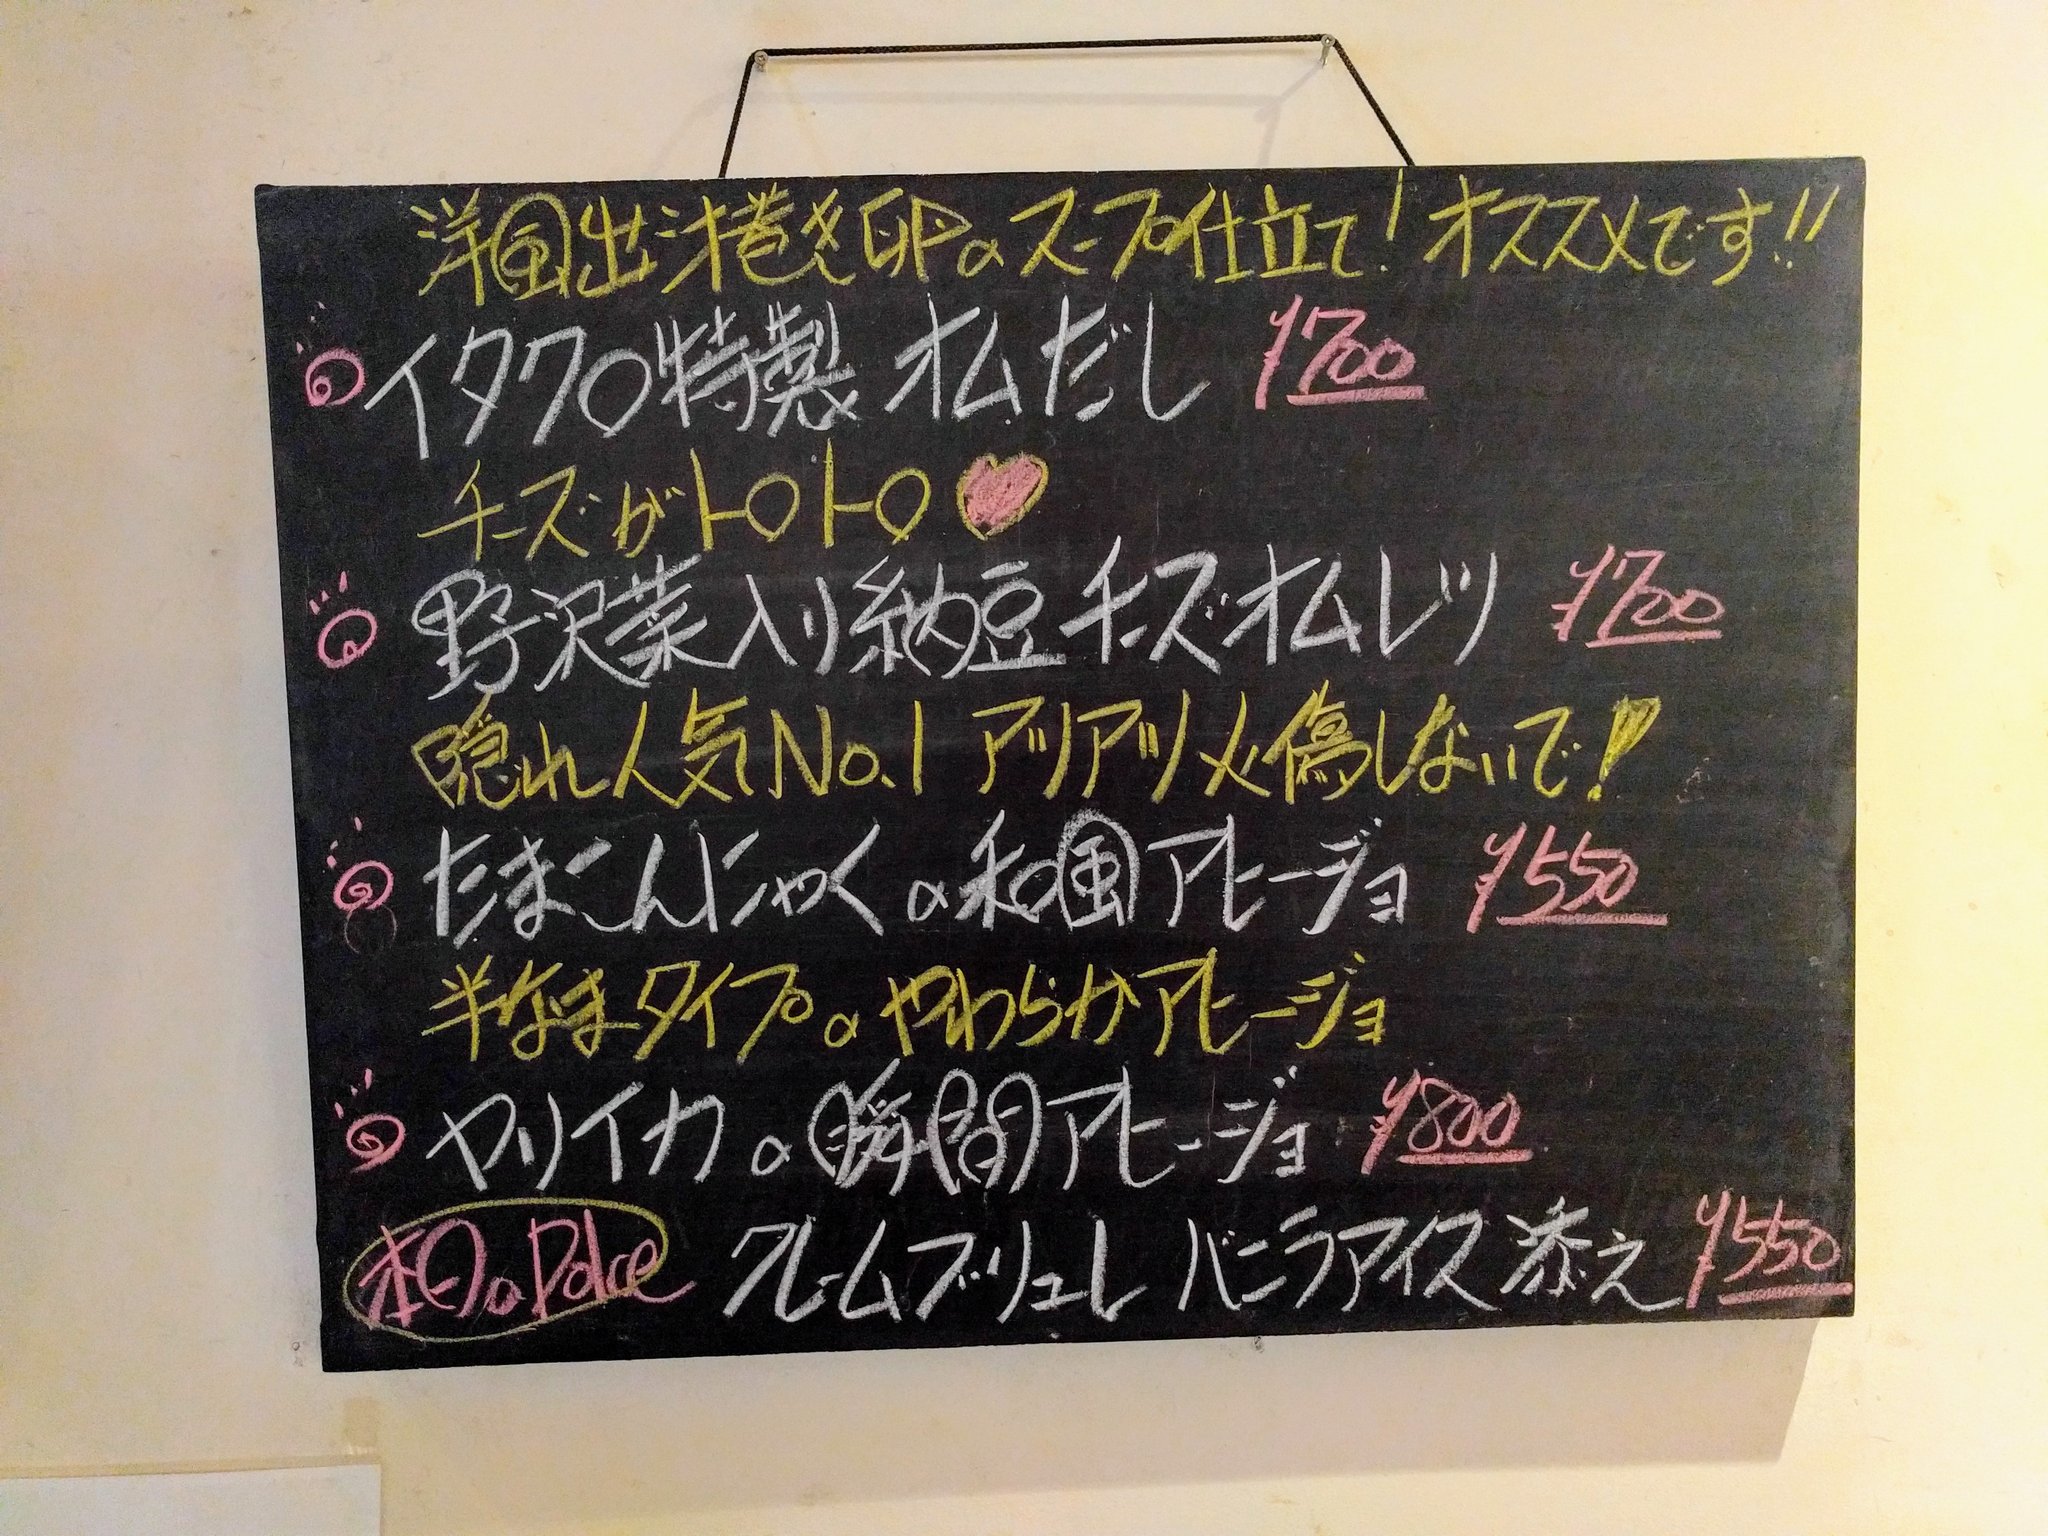 洋風出汁巻き卵のスープ仕立て！オススメです!!
イタクロ特製 オムだし ¥700
チーズがトロトロ♥
野沢菜入り納豆チーズオムレツ ¥700
隠れ人気No.1 アツアツ火傷しないで！
たまこんにゃくの和風アヒージョ ¥550
半なまタイプのやわらかアヒージョ
ヤリイカの瞬間アヒージョ ¥800
本日のDolce クレームブリュレ バニラアイス添え ¥550